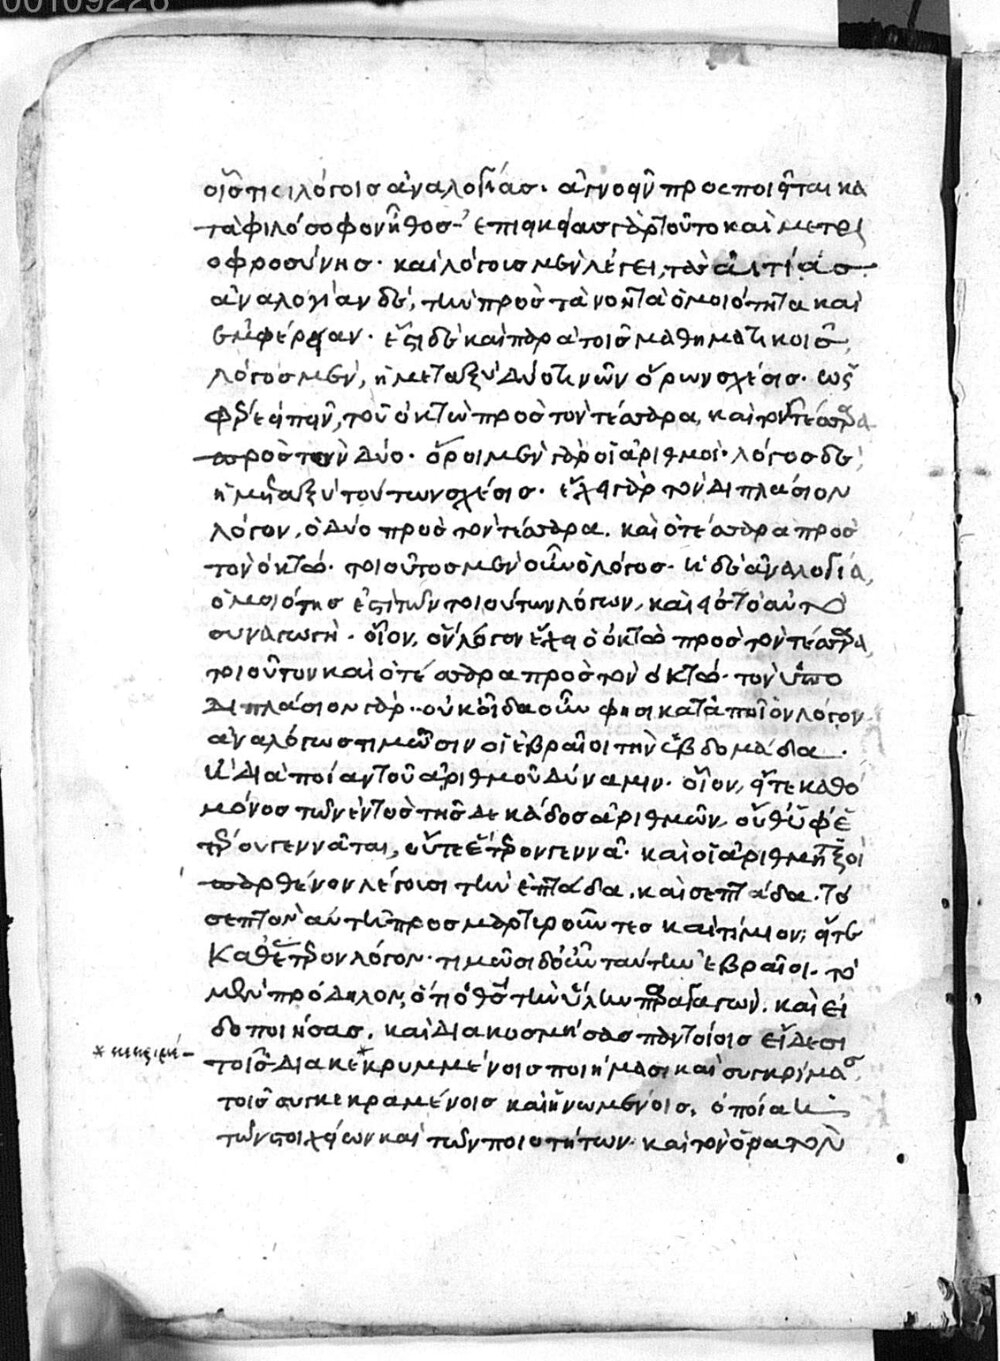 00109226
οἷς τισι λόγοις ἀναλογίας. ἀγνοεῖν προσποιεῖται κα
τὰ φιλόσοφον ἦθος· ἐπιεικείας γὰρ τοῦτο καὶ μετρι
οφροσύνης. καὶ λόγοις μὲν λέγει, τὰς αἰτίας
ἀναλογίαν δὲ, τὴν πρὸς τὰ νοητὰ ὁμοιότητα καὶ
ἐμφέρειαν. ἔστι δὲ καὶ παρὰ τοῖς μαθηματικοῖς,
λόγος μὲν, ἡ μεταξὺ δύο τινῶν ὅρων σχέσις. ὡς
φέρε εἰπεῖν, τοῦ ὀκτὼ πρὸς τὸν τέσσαρα, καὶ τὸν τέσσαρα
πρὸς τὸν δύο. ὅροι μὲν γὰρ οἱ ἀριθμοί. λόγος δὲ,
ἡ μεταξὺ τούτων σχέσις. ἔχει γὰρ τὸν διπλάσιον
λόγον, ὁ δύο πρὸς τὸν τέσσαρα. καὶ ὁ τέσσαρα πρὸς
τὸν ὀκτώ. τοιοῦτος μὲν οὖν ὁ λόγος. ἡ δὲ ἀναλογία,
ὁμοιότης ἐστὶ τῶν τοιούτων λόγων, καὶ εἰς τὸ αὐτὸ
συναγωγή. οἷον, ὃν λόγον ἔχει ὁ ὀκτὼ πρὸς τὸν τέσσαρα,
τοιοῦτον καὶ ὁ τέσσαρα πρὸς τὸν ὀκτώ. τὸν ὑπο
διπλάσιον γάρ. οὐκ οἶδα οὖν φησι κατὰ ποῖον λόγον
ἀναλόγως τιμῶσιν οἱ ἑβραῖοι τὴν ἑβδομάδα.
ἢ διὰ ποίαν τοῦ ἀριθμοῦ δύναμιν. οἷον, εἴτε καθὸ
μόνος τῶν ἐντὸς τῆς δεκάδος ἀριθμῶν, οὔθ' ὑφ' ἑ
τέρου γεννᾶται, οὔτε ἕτερον γεννᾶ. καὶ οἱ ἀριθμητικοὶ
παρθένον λέγουσι τὴν ἑπτάδα. καὶ σεπτάδα. τὸ
σεπτὸν αὐτῇ προσμαρτυροῦντες καὶ τίμιον, εἴτε
καθ' ἕτερον λόγον. τιμῶσι δ' οὖν ταύτην ἑβραῖοι. τὸ
μὲν πρόδηλον, ὅτι ὁ θεὸς τὴν ὕλην παραγαγὼν. καὶ εἰ
δοποιήσας. καὶ διακοσμήσας παντοίοις εἴδεσι
τοῖς διακεκρυμμένοις ποιήμασι καὶ συγκρίμασι
τοῖς συγκεκραμένοις καὶ ἡνωμένοις. ὁποῖα
τῶν στοιχείων καὶ τῶν ποιοτήτων. καὶ τὸν ὁρατὸν